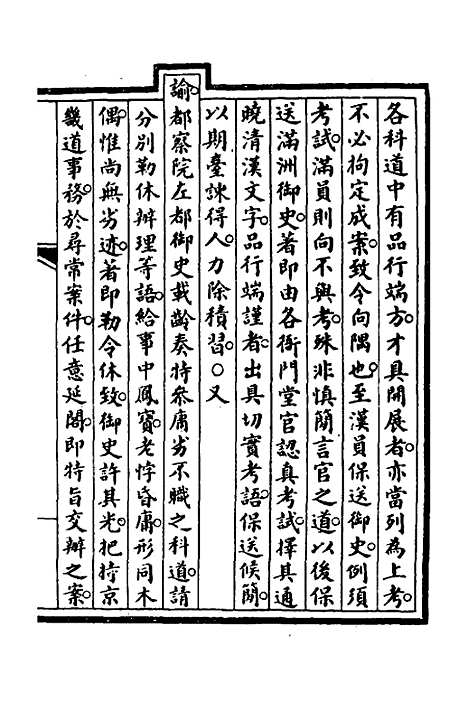 各科道中有品行端方。才具開展者。亦當列為上考。
不必拘定成案。致令向隅也。至漢員保送御史。例須
考試。滿員則向不與考。殊非慎簡言官之道。以後保
送滿洲御史。著即由各衙門堂官認真考試。擇其通
曉清漢文字。品行端謹者。出具切實考語。保送候簡。
以期臺諫得人。力除積習。○又
諭。都察院左都御史載齡奏特參庸劣不職之科道。請
分別勒休辦理等語。給事中鳳寶。老悖昏庸。形同木
偶。惟尚無劣迹。著即勒令休致。御史許其光。把持京
畿道事務。於尋常案件。任意延閣。即特旨交辦之案。